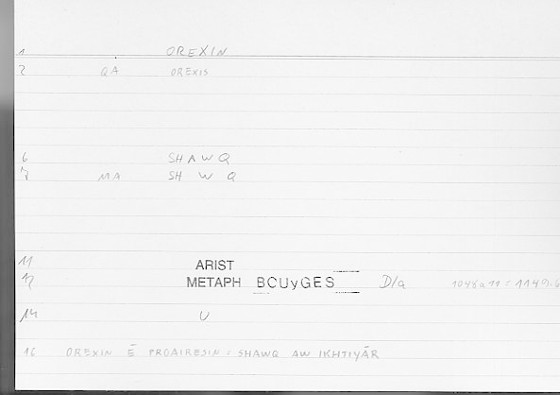 1 OREXIN
2 QA OREXIS
6 SHAWQ
7 MA SH W Q
11 ARIST
12 METAPH BOUyGES D/a 1048a11 : 1149.6
14 U
16 OREXIN Ē PROAIRESIN : SHAWQ AW IKHTIYĀR